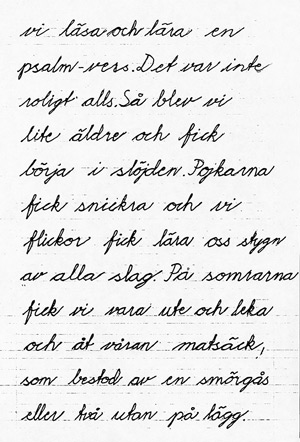 vi läsa och lära en
psalm-vers. Det var inte
roligt alls. Så blev vi
lite äldre och fick
börja i slöjden. Pojkarna
fick snickra och vi
flickor fick lära oss stygn
av alla slag. På somrarna
fick vi vara ute och leka
och åt våran matsäck,
som bestod av en smörgås
eller två utan på lägg.